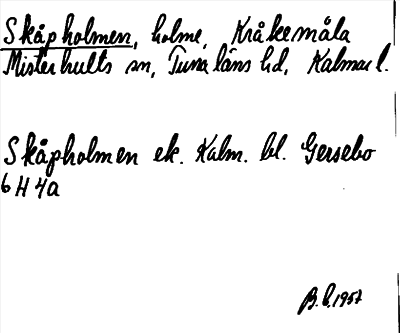 Skåpholmen, holme, Kråkemåla
Misterhults sn, Tunaläns hd, Kalmar l.
Skåpholmen ek. Kalm. bl. Gersebo
6 H 4a
B.L. 1957